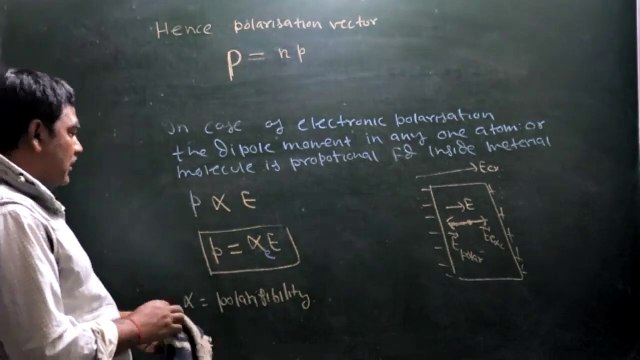 Hence polarisation vector
P = n p
In case of electronic polarisation
the dipole moment in any one atom or
molecule is propotional Fd inside meterial
p ∝ E
p = ∝E
α = polarisibility
Eex
E
E